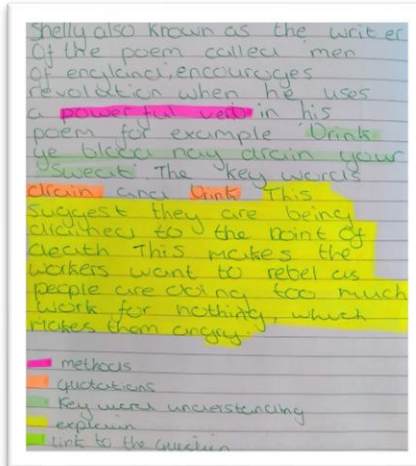 Shelly also known as the writer
Of the poem called men
Of england, encourages
revolution when he uses
a powerful verb in his
poem for example Drink
ye blood nay drain your
Sweat. The key words
drain and Drink This
suggest they are being
drained to the point of
death This makes the
workers want to rebel as
people are doing too much
work for nothing, which
makes them angry.
methods
quotations
Key word understanding
explain
Link to the question